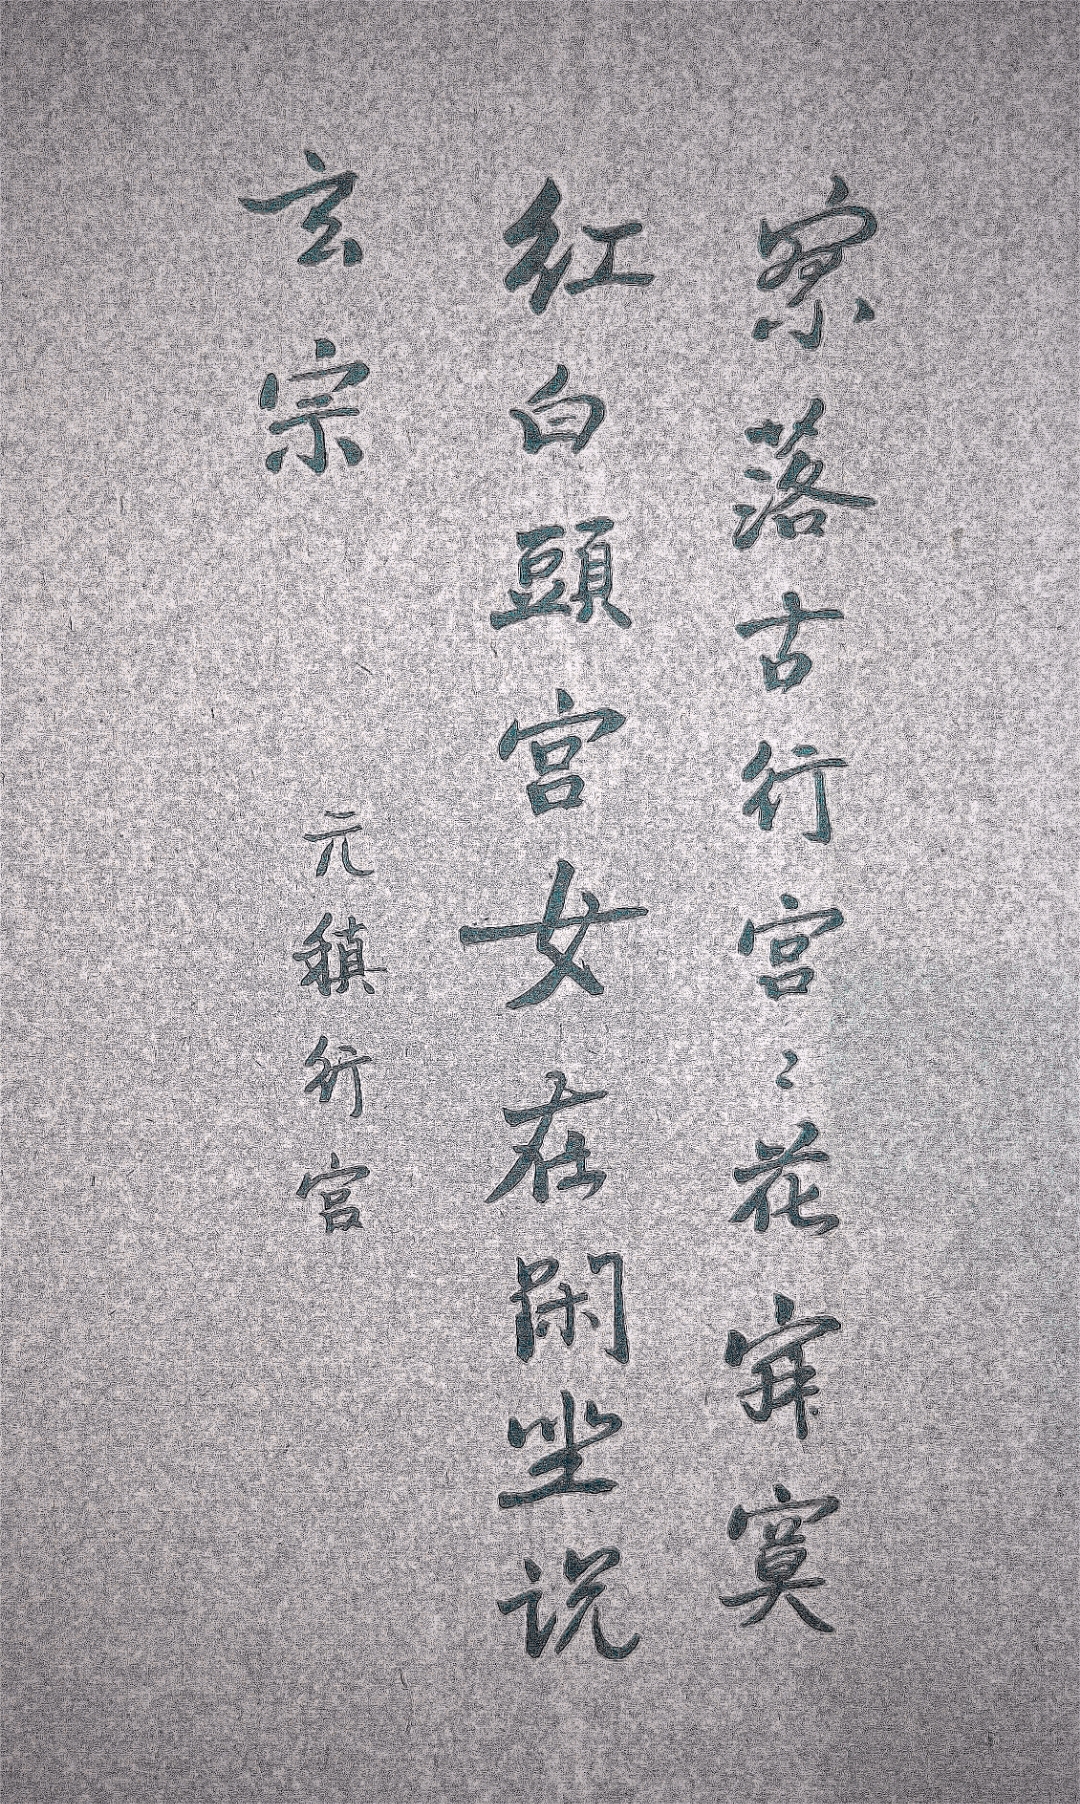 寥落古行宫〻花寂寞
紅白頭宫女在閑坐说
玄宗
元稹行宫